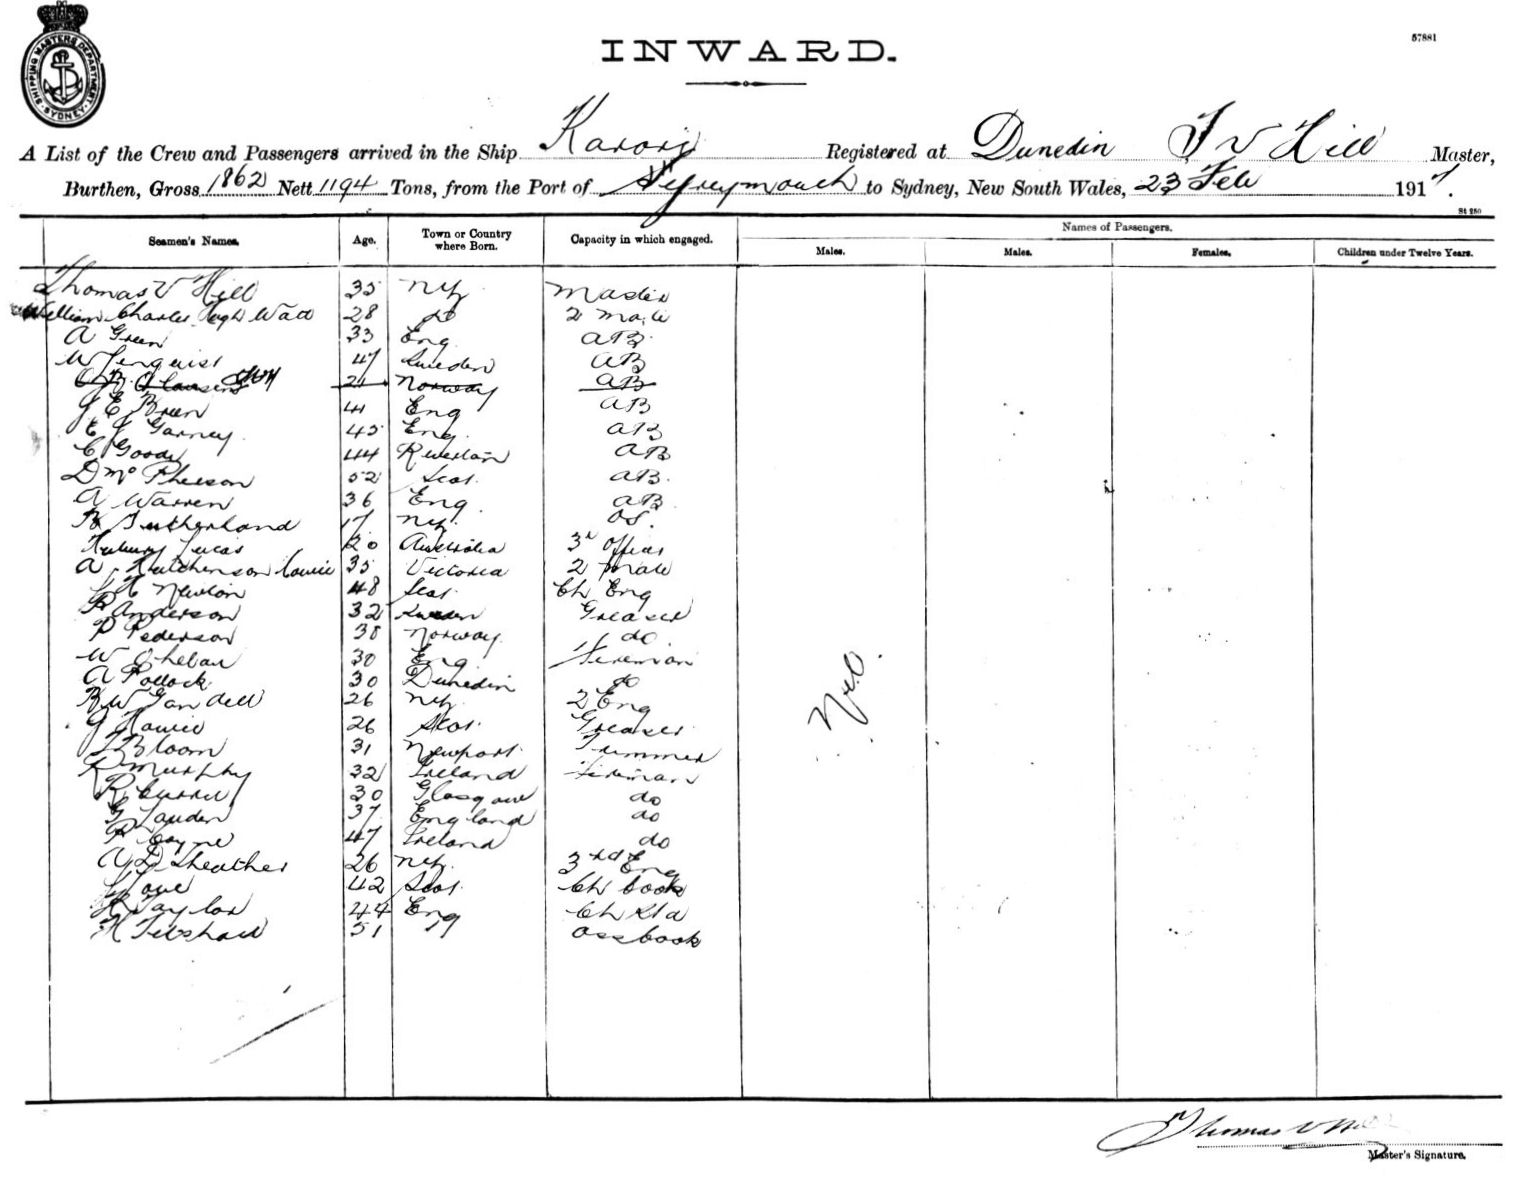 SHIPPING MASTERS DEPARTMENT SYDNEY
INWARD.
57881
A List of the Crew and Passengers arrived in the Ship Karori Registered at Dunedin T V Hill Master,
Burthen, Gross 1862 Nett 1194 Tons, from the Port of Greymouth to Sydney, New South Wales, 23 Feb 1917.
St 250
Seamen's Names. Age. Town or Country where Born. Capacity in which engaged. Names of Passengers.
Males. Males. Females. Children under Twelve Years.
Thomas V Hill 35 NZ Master
William Charles Hugh Watt 28 do 2 Mate
A Green 33 Eng AB
W 47 Sweden AB
Clausen 21 Norway AB
J E Breen 41 Eng AB
E J Garney 45 Eng AB
C Goode 44 Russian AB
D McPherson 52 Scot. AB.
A Warren 36 Eng. AB
Sutherland 17 NZ. OS.
Lucas 20 Australia 3rd Officer
A Hutchenson Cowie 35 Victoria 2 Mate
Newton 48 Scot Ch Eng
Anderson 32 Greaser
P Pederson 38 Norway. do.
W Phelan 30 Eng Fireman
A Pollock 30 Dunedin do
R W Gandell 26 NZ 2 Eng
J Howie 26 Scot. Greaser
J Bloom 31 Newport Trimmer
P Murphy 32 Ireland Fireman
R Currie 30 Glasgow do
G Lauder 37 England do
P Coyne 47 Ireland do
A D Sheather 26 NZ. 3rd Eng
Love 42 Scot Ch Cook
H Taylor 44 Eng Ch Std
H 51 " Ass Cook
Nil.
Thomas V Hill
Master's Signature.